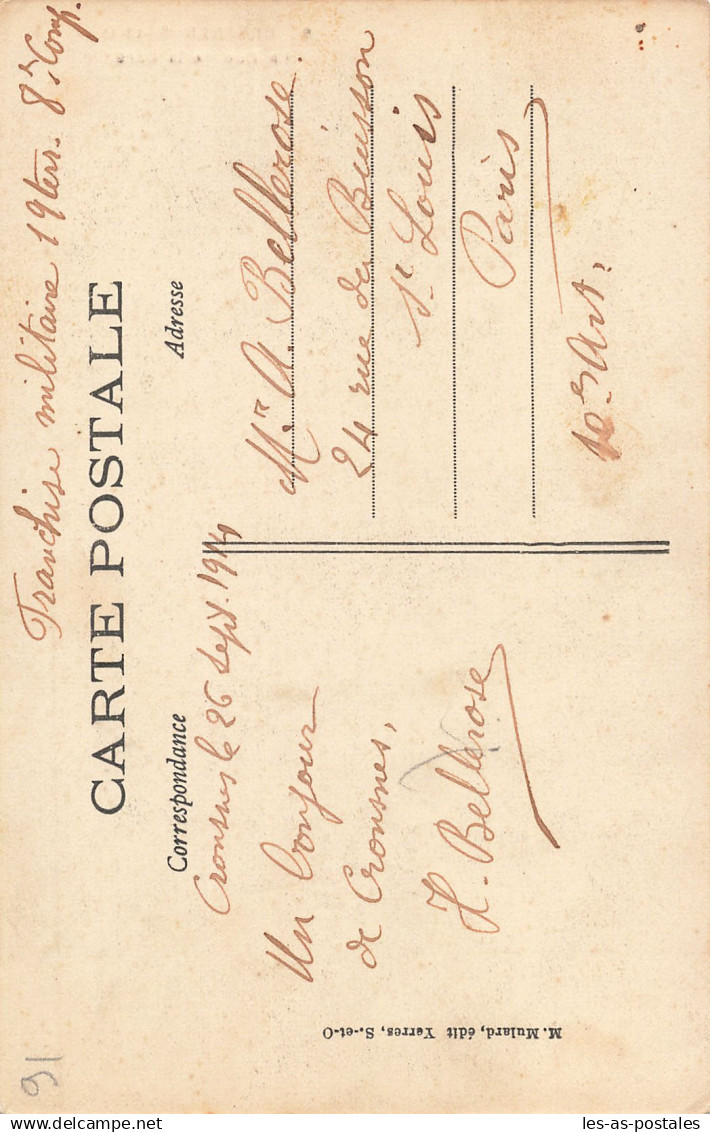 Franchise militaire 19 terr. 8e Comp.
CARTE POSTALE
Correspondance
Crosnes le 26 sept. 1914
Un bonjour
de Crousnes,
H. Bellerose
Adresse
Mr A. Bellerose
24 rue du Buisson
St Louis
Paris
10e Art.
M. Mulard, édit Yerres, S.-et-O
91
les-as-postales